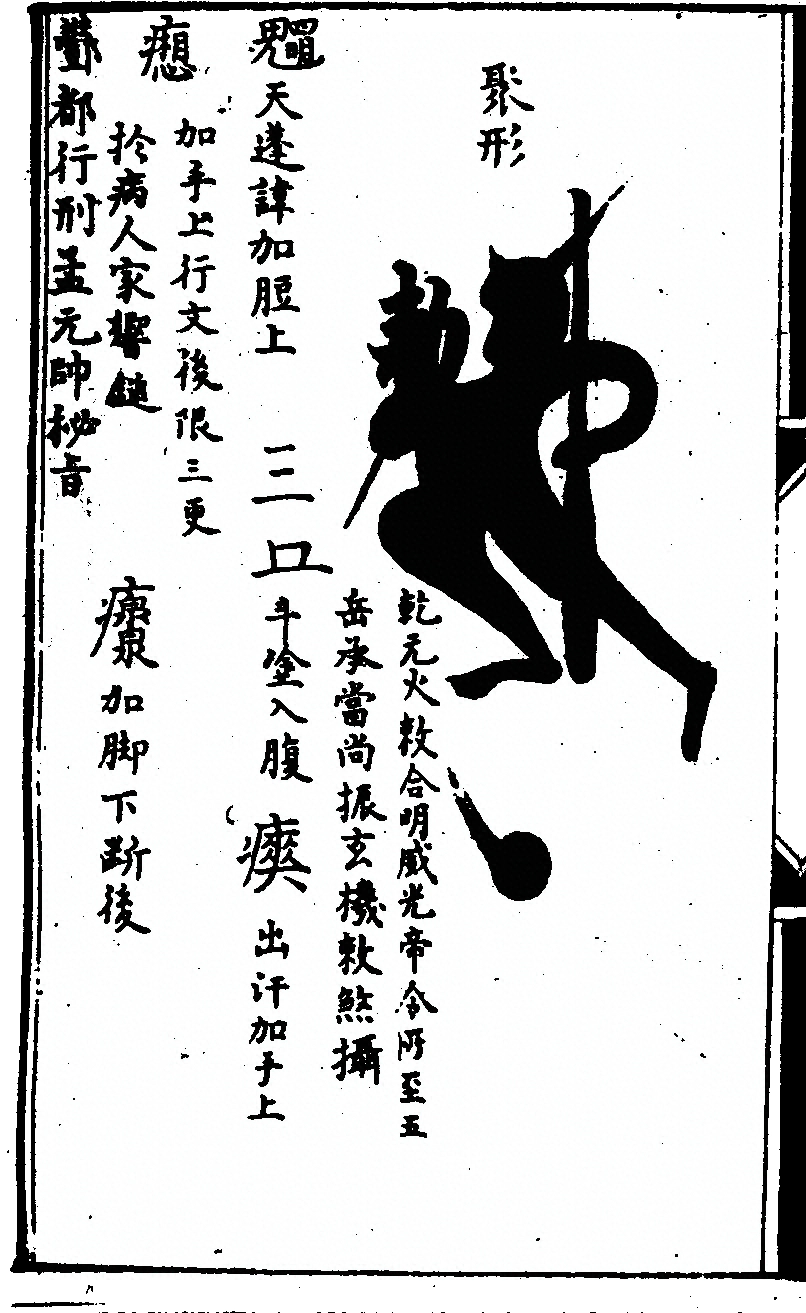 聚形
乾元火敕合明威光帝令所至五
岳承當尚振玄機敕煞攝
天蓬諱加脰上
三
斗塗入腹
出汗加手上
加手上行文後限三更
扵病人家響鏈
加脚下斷後
酆都行刑孟元帥秘音